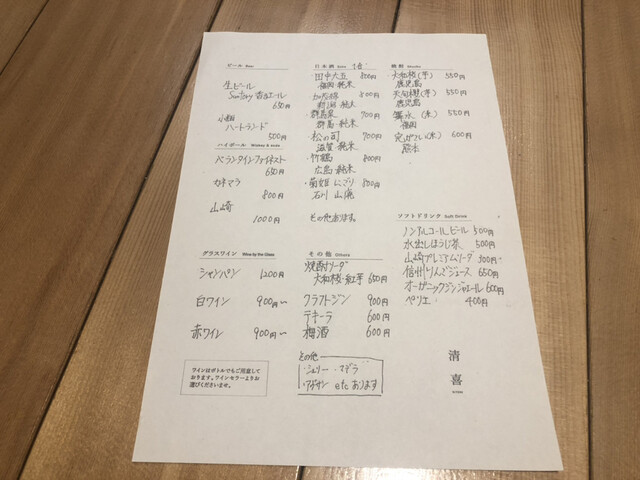 ビール Beer
生ビール
Suntory 香るエール
650円
小瓶
ハートランド
500円
ハイボール Whiskey & soda
バランタインファイネスト
650円
カネマラ
800円
山崎
1000円
グラスワイン Wine by the Glass
シャンパン 1200円
白ワイン 900円〜
赤ワイン 900円〜
ワインはボトルでもご用意して
おります。ワインセラーよりお
選びくださいませ。
日本酒 Sake 1合
・田中六五 800円
福岡 純米
800円
新潟 純米
・群馬泉 700円
群馬 純米
・松の司 900円
滋賀 純米
・竹鶴 800円
広島 純米
・菊姫 にごり 800円
石川 山廃
その他あります。
その他 Others
焼酎ソーダ
大和桜・紅芋 650円
クラフトジン 900円
テキーラ 600円
梅酒 600円
その他
・シェリー ・マデラ
etc あります
焼酎 Shochu
・大和桜(芋) 550円
鹿児島
・天句桜(芋) 550円
鹿児島
(米) 550円
福岡
(米) 600円
熊本
ソフトドリンク Soft Drink
ノンアルコールビール 500円
水出しほうじ茶 500円
山崎プレミアムソーダ 300円
信州りんごジュース 650円
オーガニックジンジャエール 600円
ペリエ 400円
清
喜